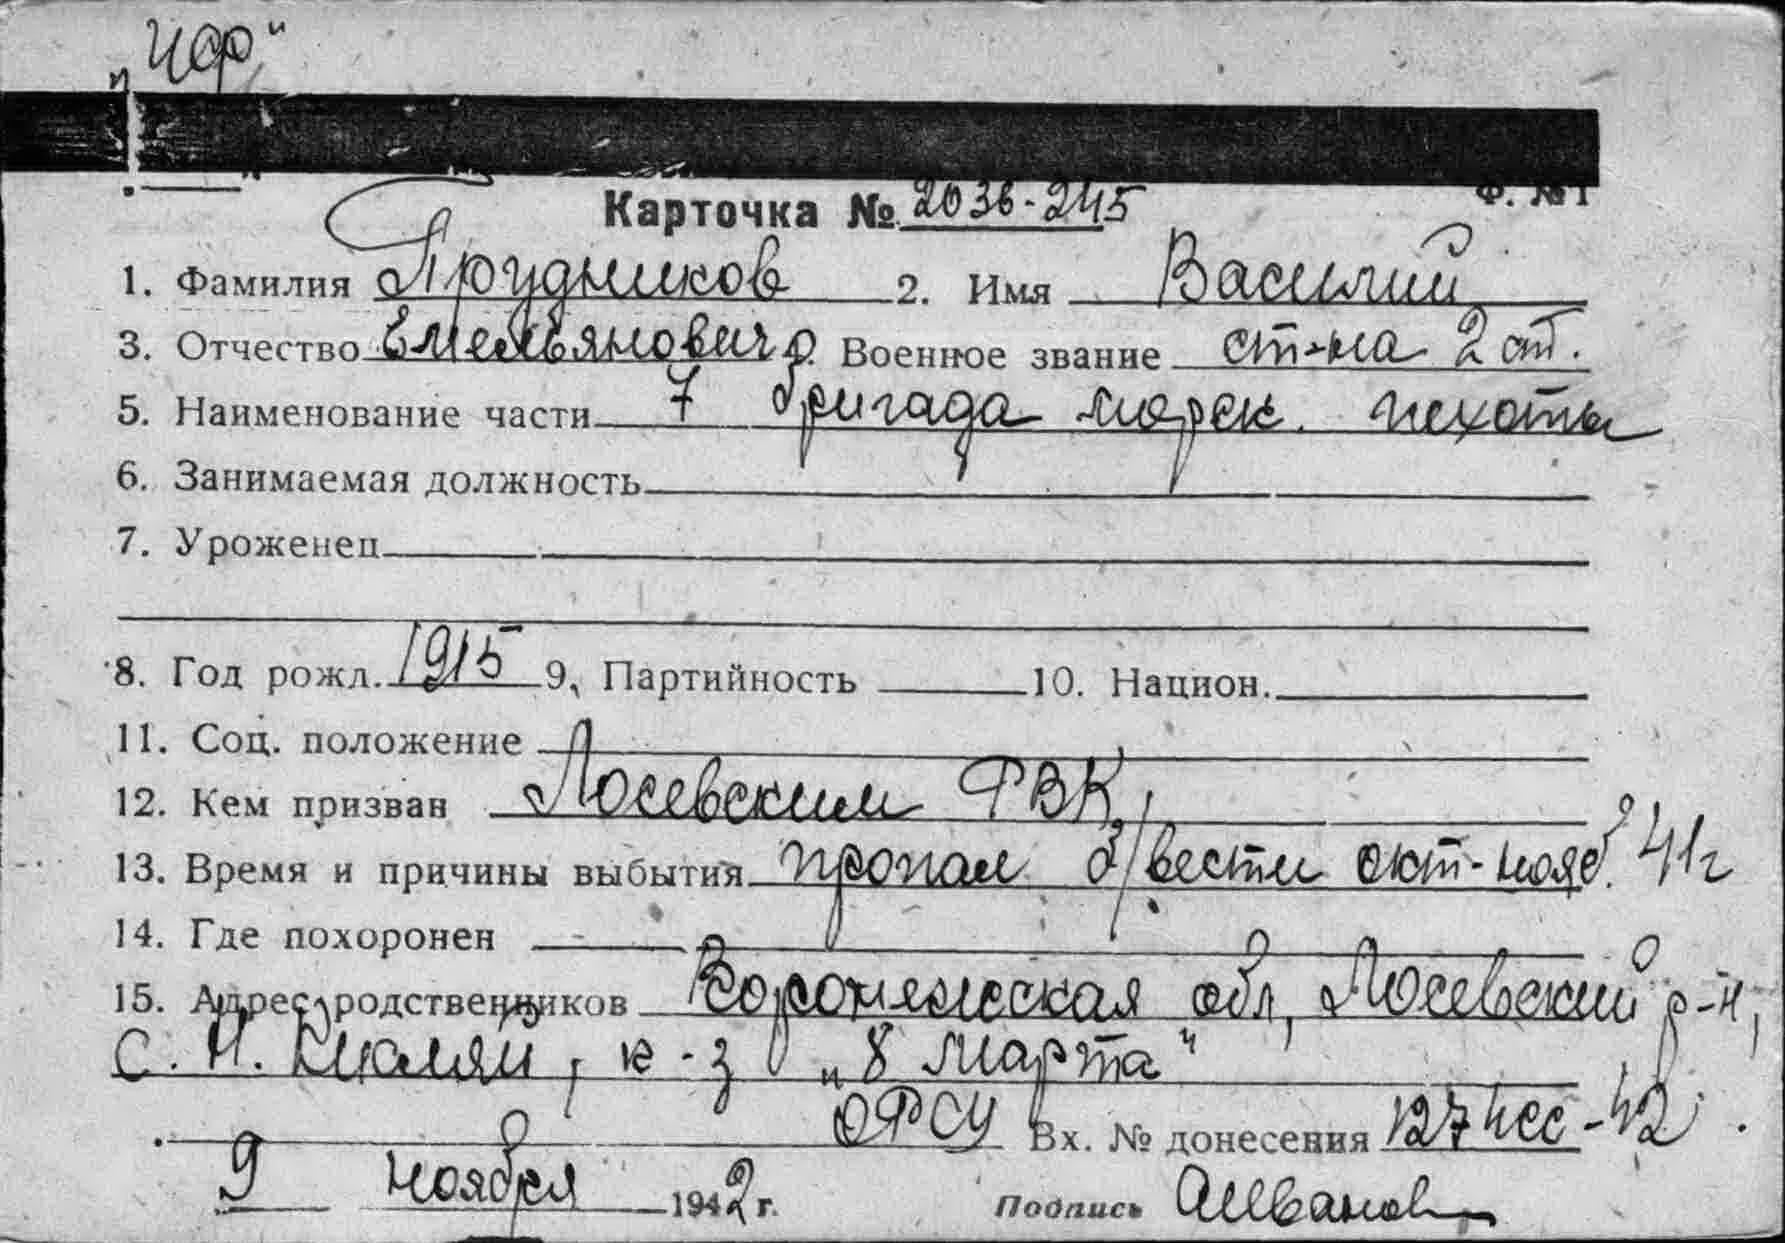 „ЧФ“
Ф. № 1
Карточка № 2036-245
1. Фамилия Прудников 2. Имя Василий
3. Отчество Емельянович Военное звание ст-на 2 ст.
5. Наименование части 7 бригада морск. пехоты
6. Занимаемая должность
7. Уроженец
8. Год рожд. 1915 9. Партийность 10. Национ.
11. Соц. положение
12. Кем призван Лосевским РВК
13. Время и причины выбытия пропал б/вести окт-нояб. 41г
14. Где похоронен
15. Адрес родственников Воронежская обл, Лосевский р-н,
с. Н. , к-з „8 Марта“
ОФСУ Вх. № донесения 127 -42
9 ноября 1942 г. Подпись